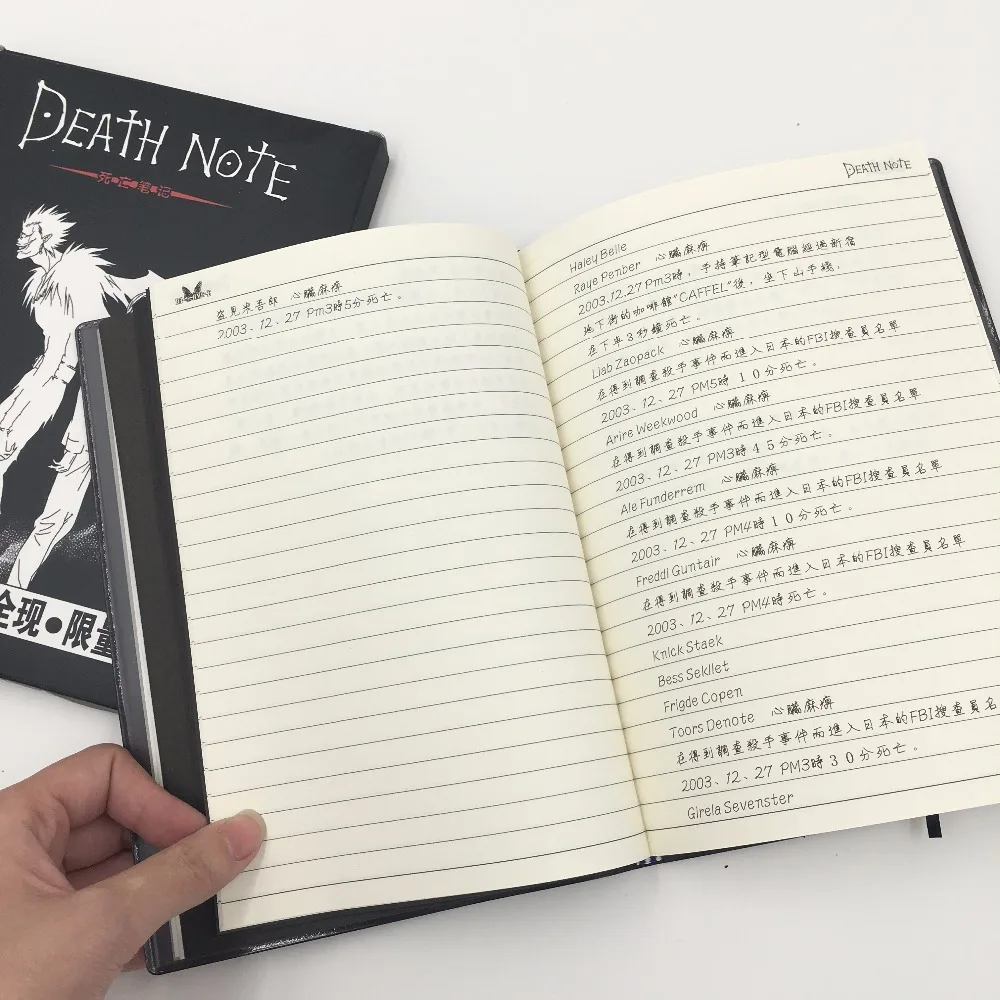 DEATH NOTE
死亡笔记
全现●限量
盗見米吾郎 心臟麻痹
2003、12、27 Pm3時5分死亡。
DEATH NOTE
Haley Belle
Raye Penber 心臟麻痹
2003.12.27 Pm3時，手持筆記型電腦經過新宿
地下街的咖啡館"CAFFEL"後，坐下山手綫，
在下車3秒鐘死亡。
Liab Zaopack 心臟麻痹
在得到調查殺手事件而進入日本的FBI搜查員名單
2003、12、27 PM5時10分死亡。
Arire Weekwood 心臟麻痹
在得到調查殺手事件而進入日本的FBI搜查員名單
2003、12、27 PM3時45分死亡。
Ale Funderrem 心臟麻痹
在得到調查殺手事件而進入日本的FBI搜查員名單
2003、12、27 PM4時10分死亡。
Freddl Guntair 心臟麻痹
在得到調查殺手事件而進入日本的FBI搜查員名單
2003、12、27 PM4時死亡。
Knlck Staek
Bess Sekllet
Frigde Copen
Toors Denote 心臟麻痹
在得到調查殺手事件而進入日本的FBI搜查員名
2003、12、27 PM3時30分死亡。
Girela Sevenster